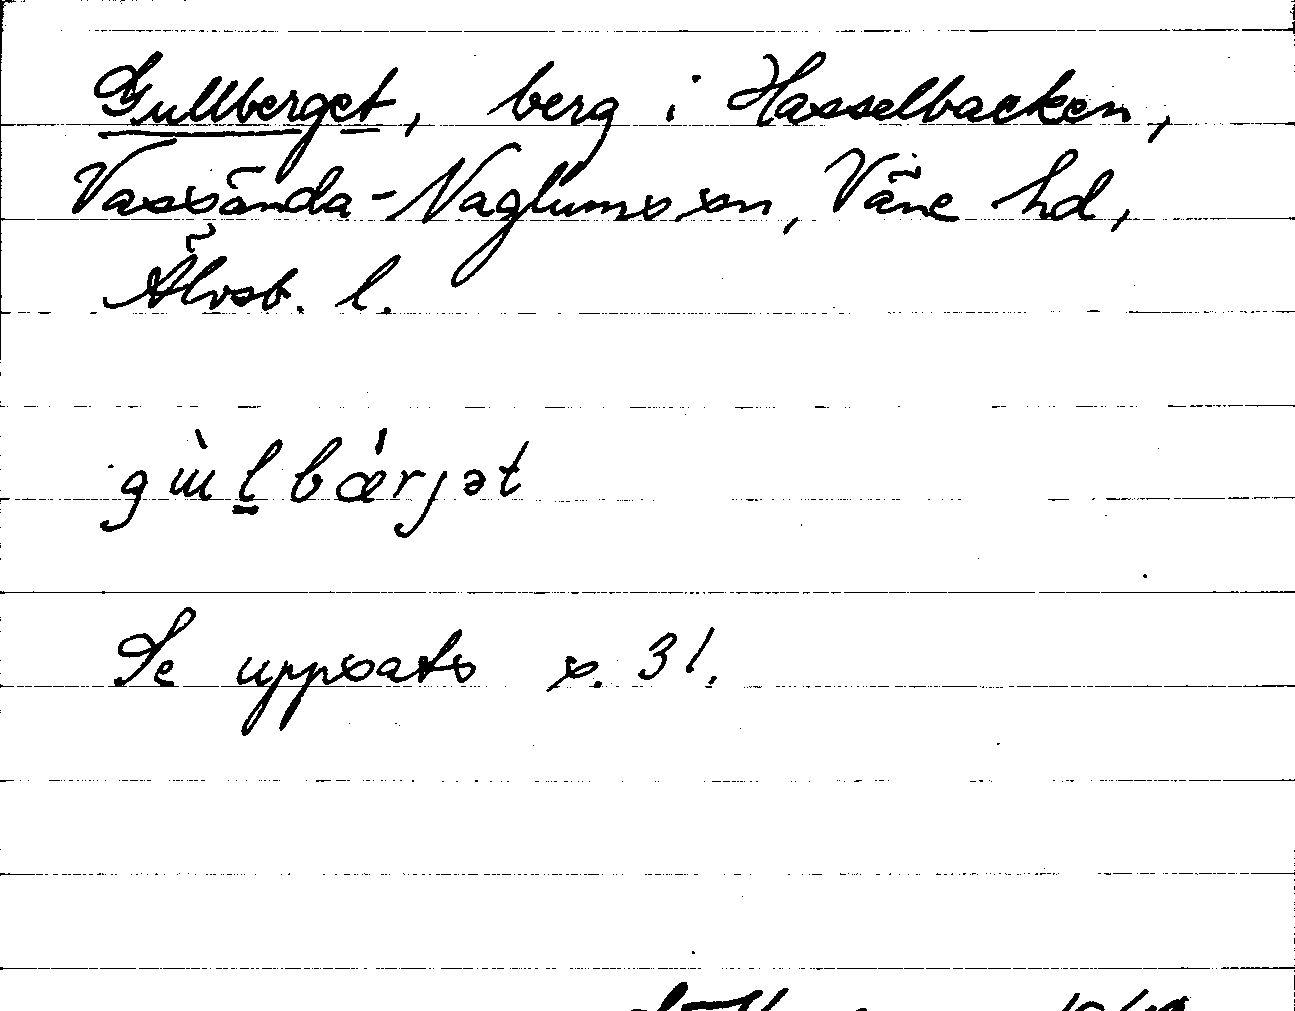 Gullberget, berg i Hasselbacken,
Vassända-Naglums sn, Väne hd,
Älvsb. l.
gɯ̀l̲bǽrjət
Se uppsats s. 31.